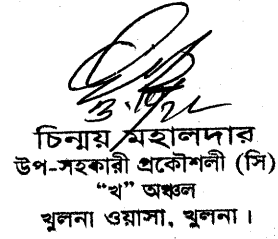 চিন্ময় মহালদার
উপ-সহকারী প্রকৌশলী (সি)
“খ” অঞ্চল
খুলনা ওয়াসা, খুলনা।